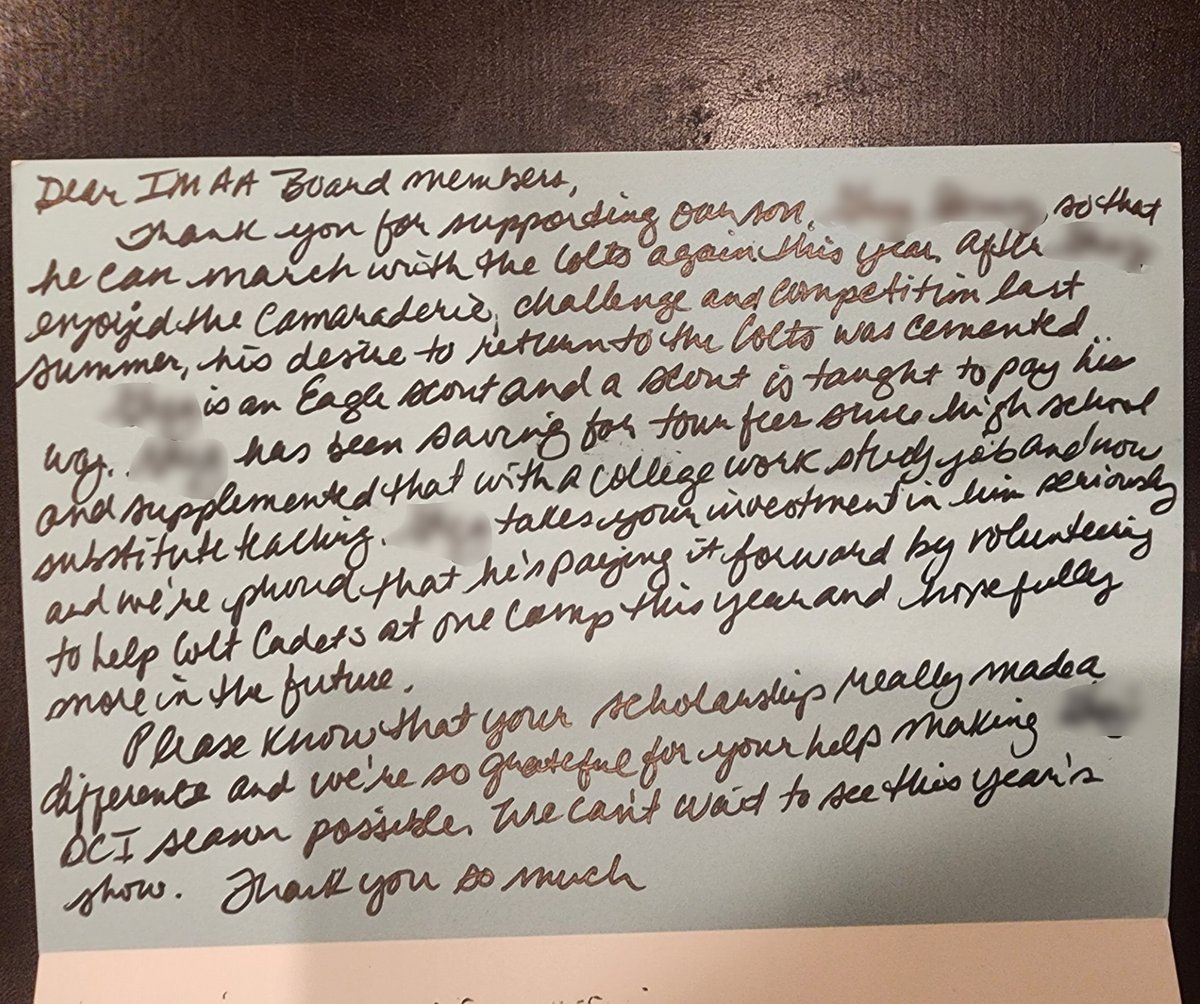 Dear IMAA Board members,
Thank you for supporting our son, so that
he can march with the Colts again this year. After
enjoyed the camaraderie, challenge and competition last
summer, his desire to return to the Colts was cemented.
is an Eagle scout and a scout is taught to pay his
way. has been saving for tour fees since high school
and supplemented that with a college work study job and now
substitute teaching. takes your investment in him seriously
and we're proud that he's paying it forward by volunteering
to help Colt Cadets at one camp this year and hopefully
more in the future.
Please know that your scholarship really made a
difference and we're so grateful for your help making
DCI season possible. We can't wait to see this year's
show. Thank you so much